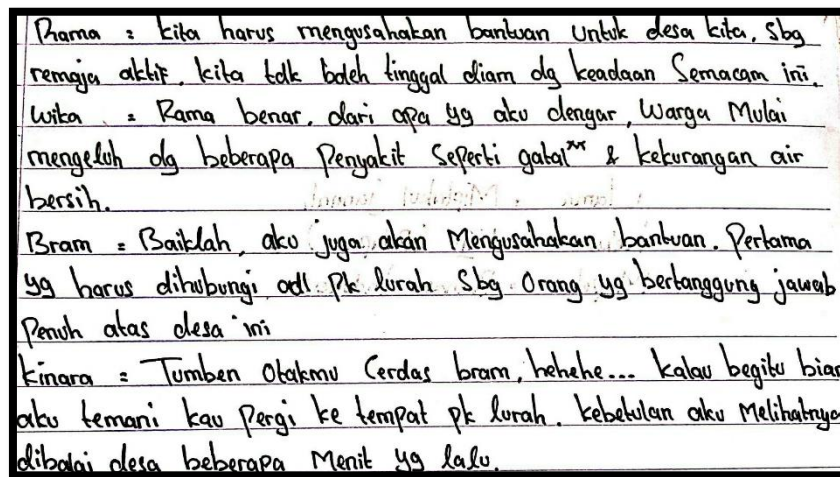 Rama : kita harus mengusahakan bantuan untuk desa kita, Sbg
remaja aktif, kita tdk boleh tinggal diam dg keadaan Semacam ini.
Wika : Rama benar, dari apa yg aku dengar, Warga Mulai
mengeluh dg beberapa Penyakit Seperti gatal" & kekurangan air
bersih.
Bram : Baiklah, aku juga akan Mengusahakan bantuan. Pertama
yg harus dihubungi adl Pk lurah Sbg Orang yg bertanggung jawab
Penuh atas desa ini
Kinara : Tumben Otakmu Cerdas bram, hehehe... kalau begitu biar
aku temani kau Pergi ke tempat pk lurah. kebetulan aku Melihatnya
dibalai desa beberapa Menit yg lalu.